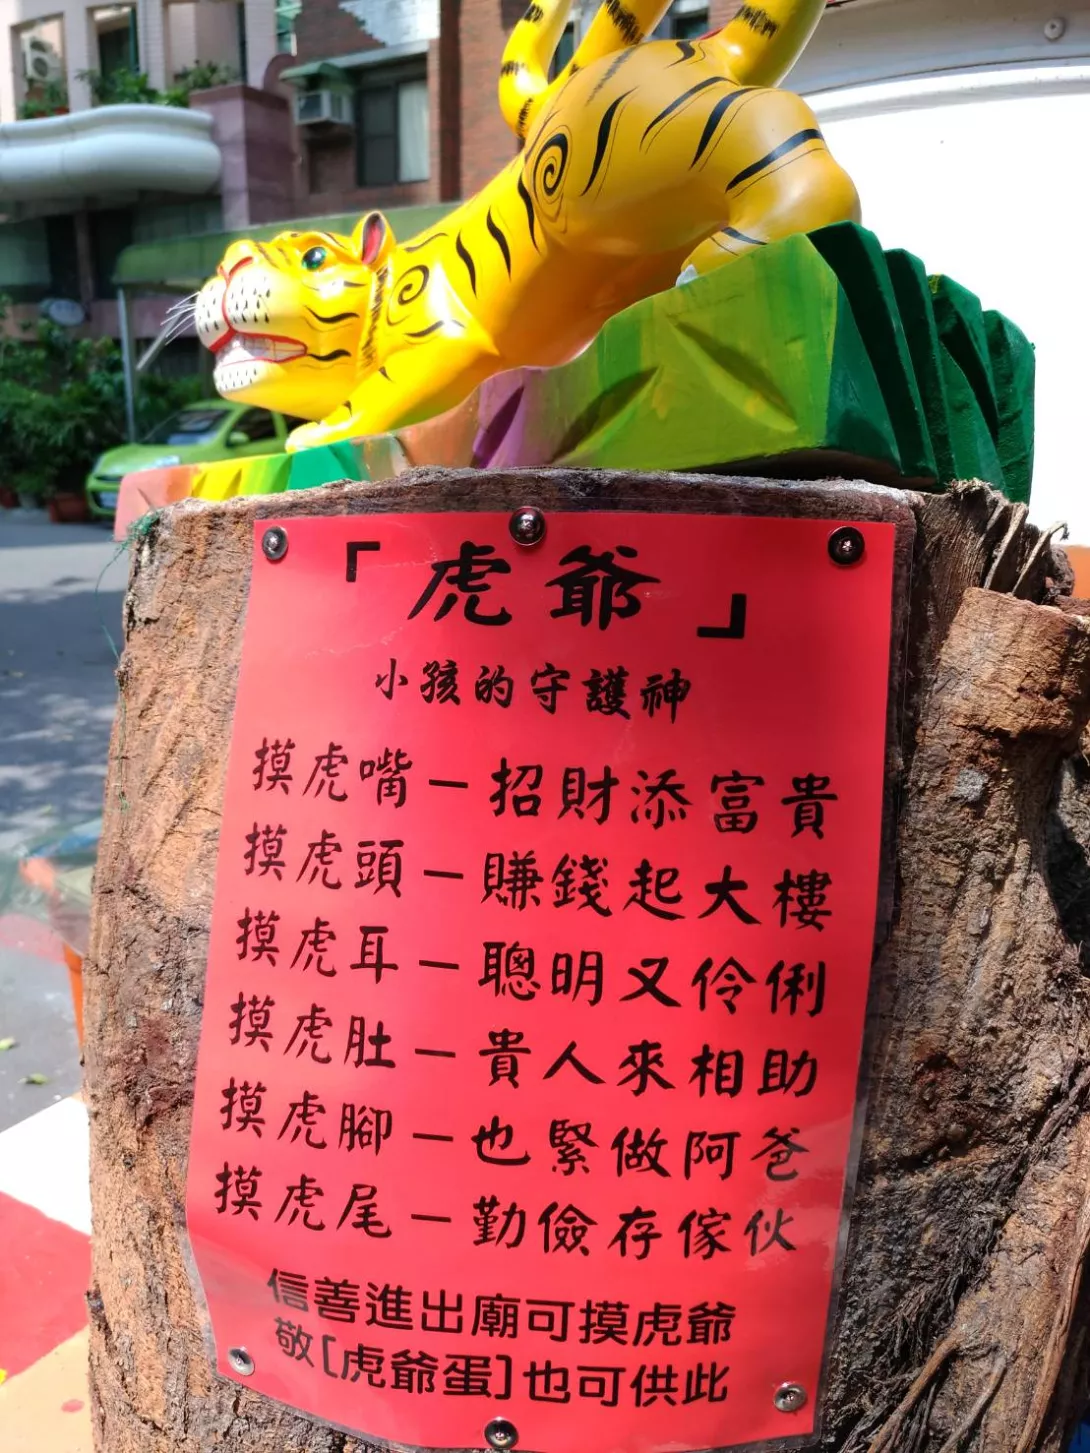 「虎爺」
小孩的守護神
摸虎嘴－招財添富貴
摸虎頭－賺錢起大樓
摸虎耳－聰明又伶俐
摸虎肚－貴人來相助
摸虎腳－也緊做阿爸
摸虎尾－勤儉存傢伙
信善進出廟可摸虎爺
敬[虎爺蛋]也可供此